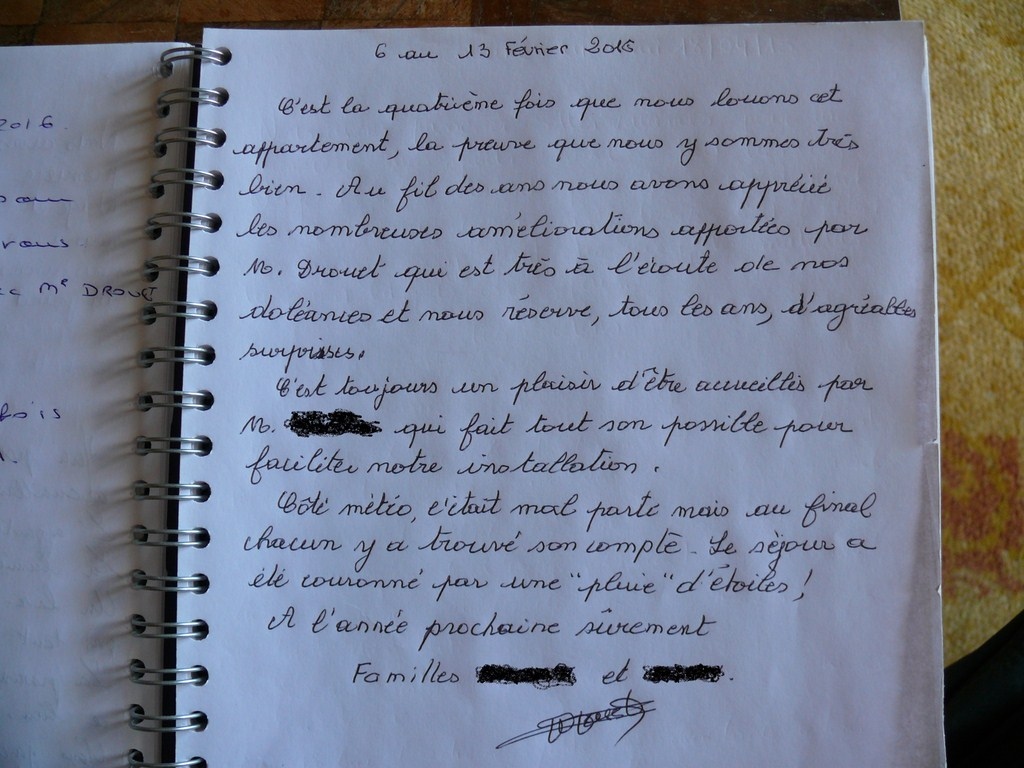 6 au 13 Février 2016
C'est la quatrième fois que nous louons cet
appartement, la preuve que nous y sommes très
bien. Au fil des ans nous avons apprécié
les nombreuses améliorations apportées par
M. Drouet qui est très à l'écoute de nos
doléances et nous réserve, tous les ans, d'agréables
surprises.
C'est toujours un plaisir d'être accueillis par
M. qui fait tout son possible pour
faciliter notre installation.
Côté météo, c'était mal parti mais au final
chacun y a trouvé son compte. Le séjour a
été couronné par une "pluie" d'étoiles !
A l'année prochaine sûrement
Familles et .
2016
vous
Mr DROUET
fois